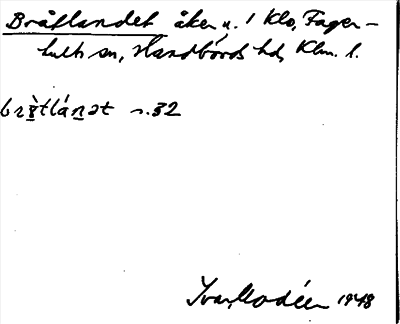 Bråtlandet åker u. 1 Klo, Fager-
hults sn, Handbörds hd, Klm. l.
brø̀tlánət n.32
Ivar Modéer 1948